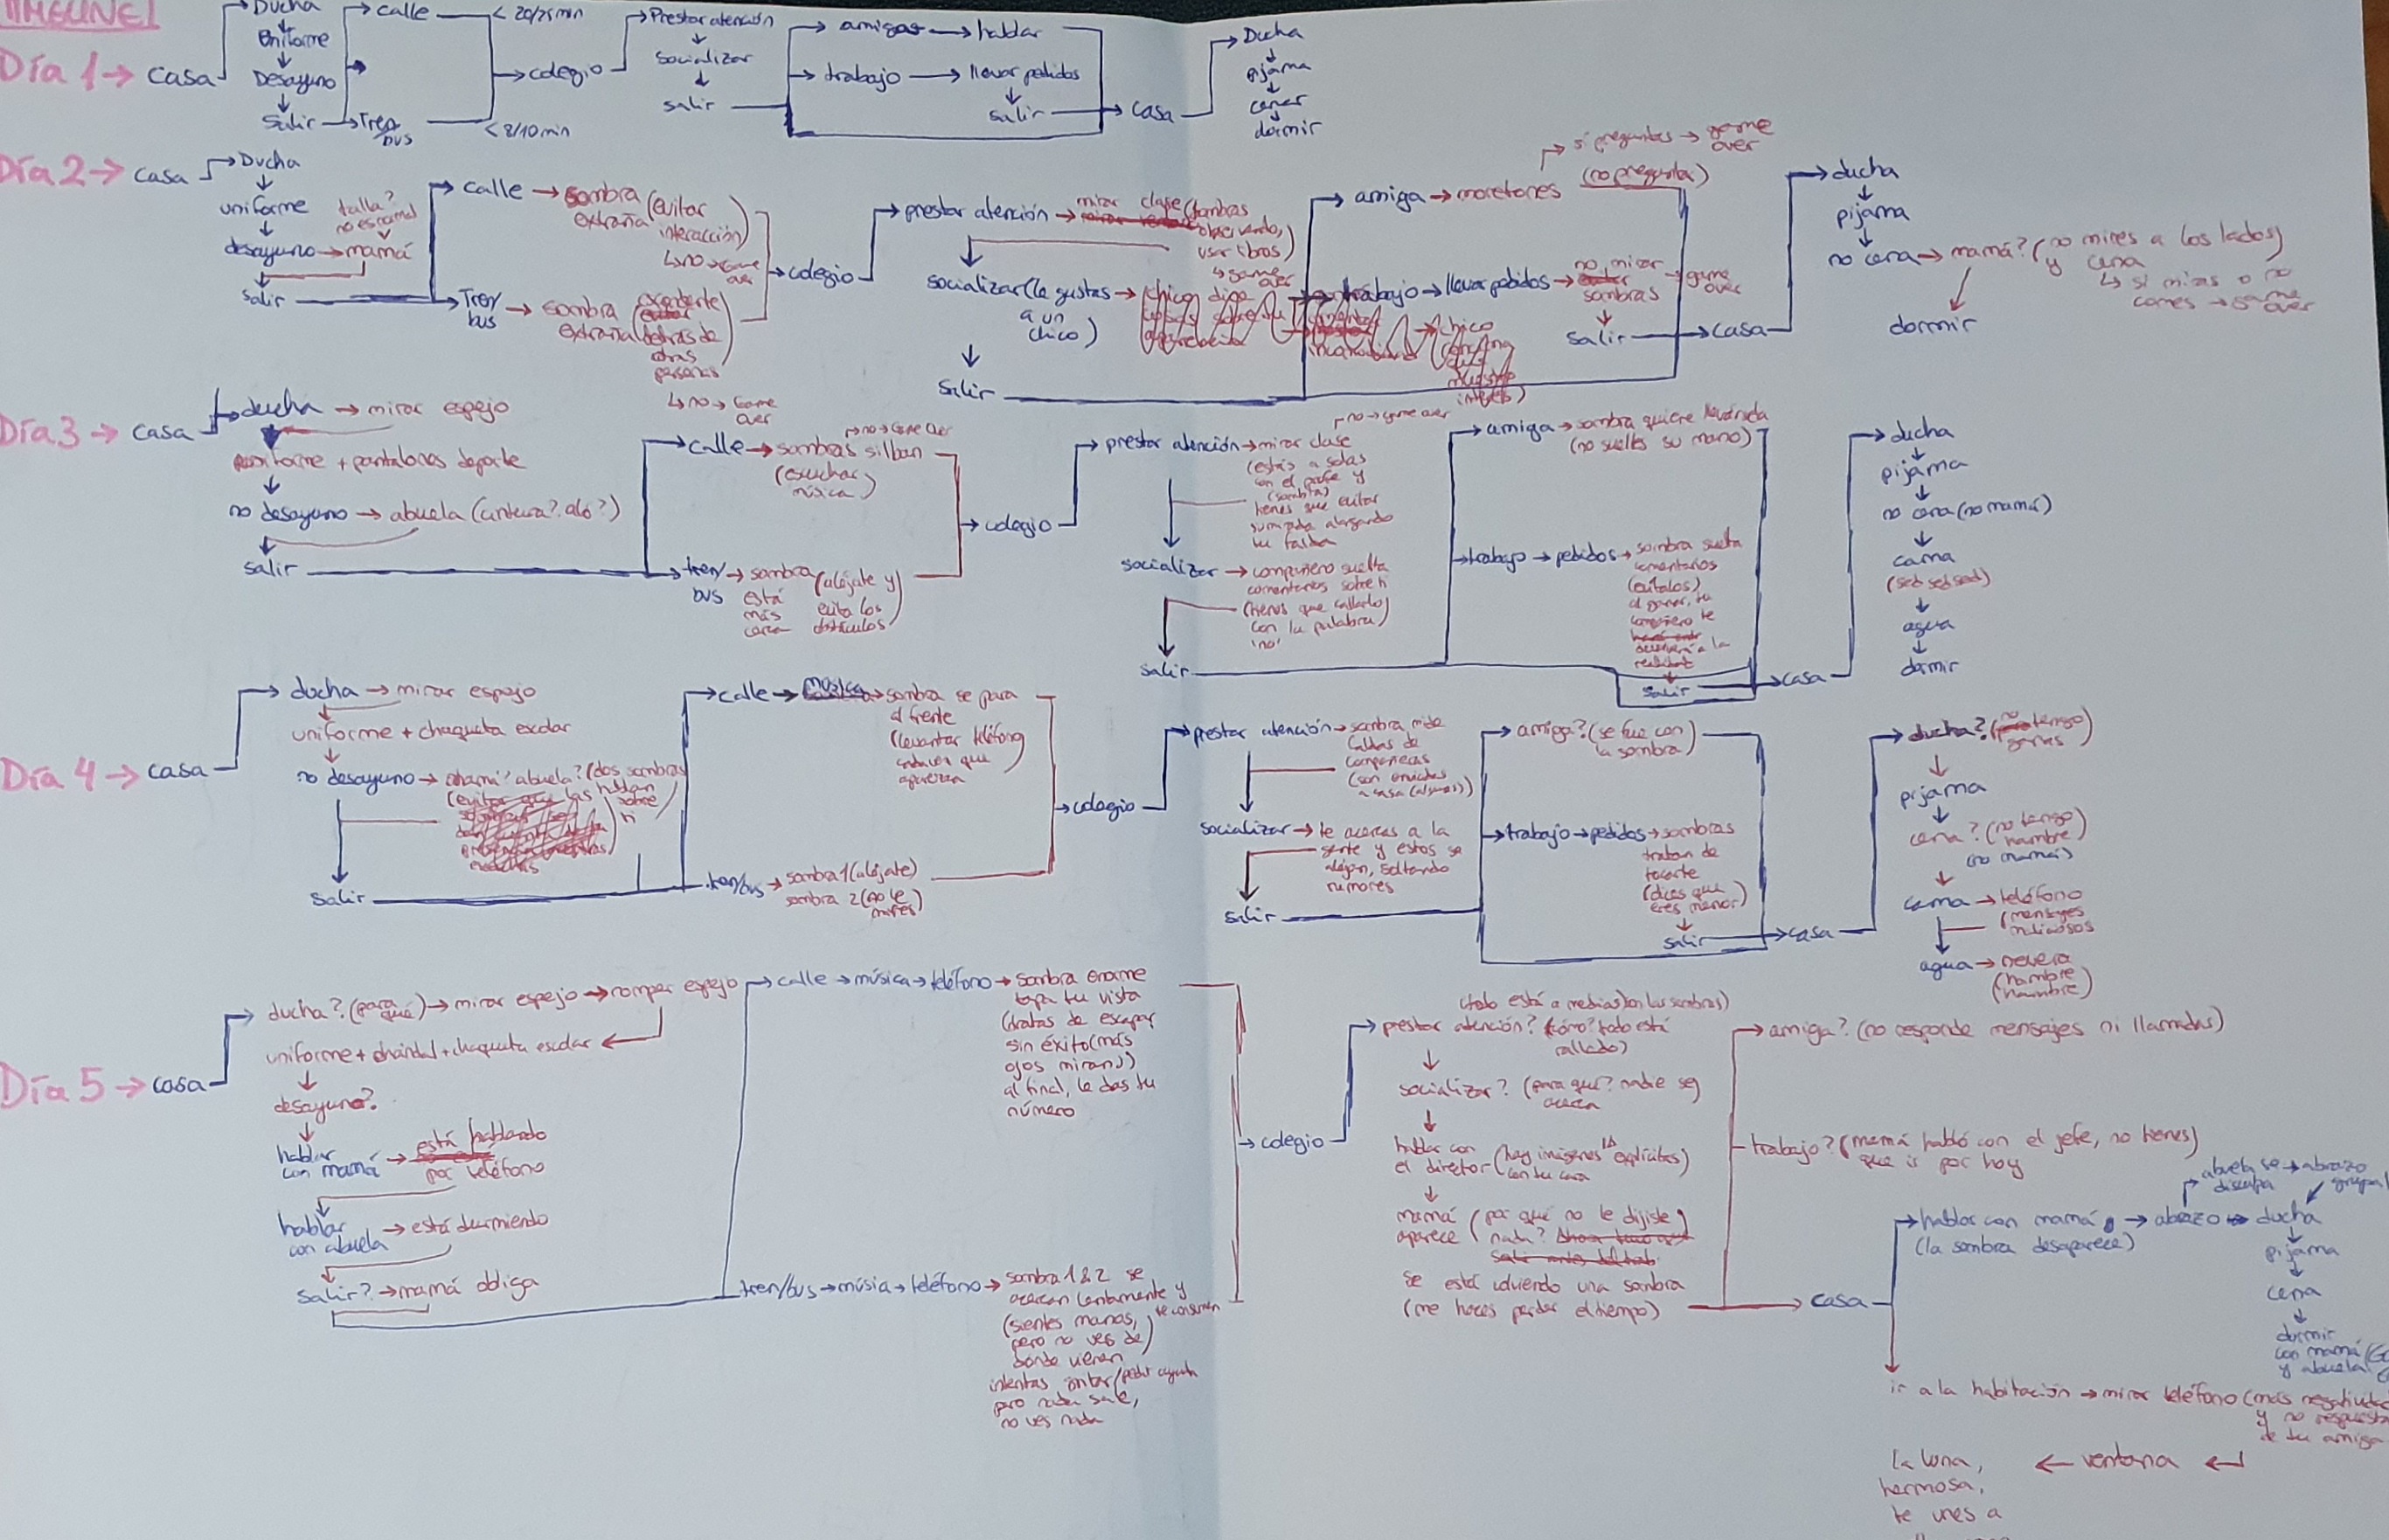 TIMELINE
Día 1 → casa
Ducha
Uniforme
Desayuno
Salir → Tren/
bus
calle
< 20/25 min
< 8/10 min
→ colegio
Prestar atención
socializar
salir
→ amigas → hablar
→ trabajo → llevar pedidos
salir
→ casa
Ducha
pijama
cenar
dormir
Día 2 → casa
Ducha
uniforme
talla?
desayuno → mamá
salir
calle → sombra (evitar
extraña interacción)
↳ no → Game
over
Tren/ → sombra
bus extraña
detrás de
otras
personas
↳ no → Game
over
→ colegio
prestar atención → mirar clase (sombras
observando,
usar libros)
↳ game
over
socializar (le gustas →
a un
chico)
salir
amiga → moretones (no preguntar)
si preguntas → game
over
trabajo → llevar pedidos → no mirar → game
sombras over
salir → casa
ducha
pijama
no cena → mamá? (no mires a los lados)
y cena
↳ si miras o no
comes → game
over
dormir
Día 3 → casa
ducha → mirar espejo
uniforme + pantalones deporte
no desayuno → abuela (cintura? año?)
salir
calle → sombras silban
(escuchar
música)
→ no → Game over
tren/ → sombra (aléjate y
bus está evita los
más obstáculos)
cerca
→ colegio
prestar atención → mirar clase
→ no → game over
(estás a solas
con el profe y
(sombra)
tienes que evitar
su mirada alargando
tu falda
socializar → compañero suelta
comentarios sobre ti
(tienes que callarlo)
con la palabra
'no'
salir
amiga → sombra quiere llevársela
(no sueltes su mano)
trabajo → pedidos → sombra suelta
comentarios
(evítalos)
al ganar, tu
compañero te
devolverá a la
realidad
salir → casa
ducha
pijama
no cena (no mamá)
cama
(sed sed sed)
agua
dormir
Día 4 → casa
ducha → mirar espejo
uniforme + chaqueta escolar
no desayuno → mamá? abuela? (dos sombras
hablan
sobre
ti
salir
calle → música → sombra se para
al frente
(levantar teléfono
cada vez que
aparezca
tren/bus → sombra 1 (aléjate)
sombra 2 (no le
mires)
→ colegio
prestar atención → sombra mide
faldas de
compañeras
(son enviadas
a casa (algunas))
socializar → te acercas a la
gente y estos se
alejan, soltando
rumores
salir
amiga? (se fue con
la sombra)
trabajo → pedidos → sombras
tratan de
tocarte
(dices que
eres menor)
salir → casa
ducha? (no tengo
ganas)
pijama
cena? (no tengo
hambre)
(no mamá)
cama → teléfono
(mensajes
maliciosos
agua → nevera
(hambre
hambre)
Día 5 → casa
ducha? (para → mirar espejo → romper espejo
qué)
uniforme + chándal + chaqueta escolar
desayuno?
hablar → está hablando
con mamá por teléfono
hablar → está durmiendo
con abuela
salir? → mamá obliga
calle → música → teléfono → sombra enorme
tapa tu vista
(tratas de escapar
sin éxito (más
ojos miran))
al final, le das tu
número
tren/bus → música → teléfono → sombra 1 & 2 se
acercan lentamente y
te consumen
(sientes manos,
pero no ves de)
dónde vienen
intentas gritar/pedir ayuda
pero nada sale,
no ves nada
→ colegio
(todo está a medias) (en las sombras)
prestar atención? (cómo? todo está
rallado)
socializar? (para qué? nadie se
acerca
hablar con
el director (hay imágenes IA explícitas)
con tu cara
mamá (por qué no le dijiste)
aparece nada?
se está volviendo una sombra
(me haces perder el tiempo)
amiga? (no responde mensajes ni llamadas)
trabajo? (mamá habló con el jefe, no tienes)
que ir por hoy
→ casa
hablar con mamá → abrazo → ducha
(la sombra desaparece)
abuela se → abrazo
disculpa grupal
pijama
cena
dormir
con mamá
y abuela
ir a la habitación → mirar teléfono (más negatividad
y no respuesta
de tu amiga
← ventana
la luna,
hermosa,
te unes a